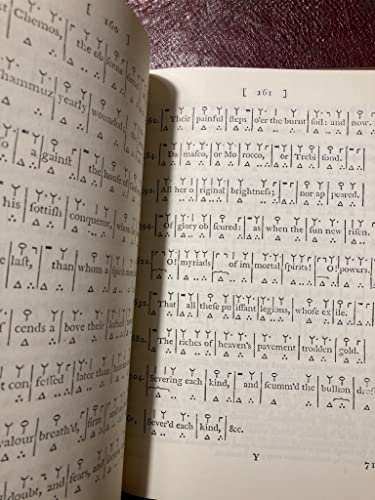 [ 160 ]
Chemos, | the ob | ſcene
hammuz | yearly | wounded;
a gainſt | the houſe of
his | ſottiſh | conqueror, whom
laſt, | than whom a
cends a | bove their
con | feſſed | later than | human
valour | breath'd, | firm | and
doubt, and | fears, | and
[ 161 ]
562. | Their painful | ſteps | o'er the burnt | ſoil: and | now.
Da | maſco, or Mo | rocco, | or Trebi | ſond.
All her o | riginal | brightneſs; | nor ap | peared.
594. Of glory ob | ſcured: | as | when the ſun new | riſen.
O! | myriads | of im | mortal | ſpirits! | O! powers.
632. | That | all theſe pu | iſſant legions, whoſe ex | ile.
682. The | riches of | heaven's | pavement | trodden | gold.
Severing each | kind, | and | ſcumm'd the | bullion
Sever'd each | kind, | &c.
Y